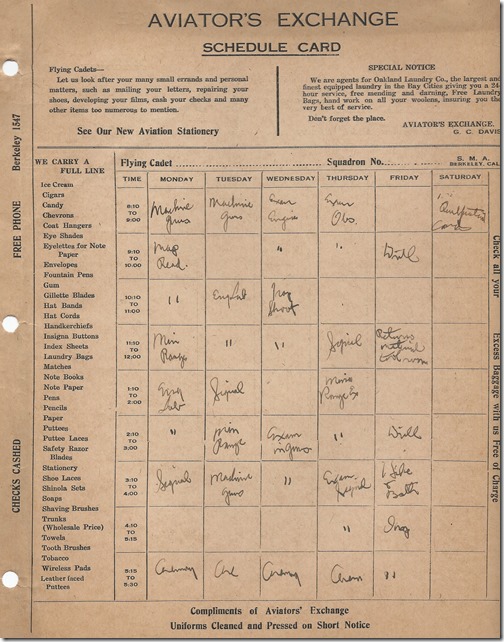 AVIATOR'S EXCHANGE
SCHEDULE CARD
Flying Cadets—
Let us look after your many small errands and personal
matters, such as mailing your letters, repairing your
shoes, developing your films, cash your checks and many
other items too numerous to mention.
See Our New Aviation Stationery
SPECIAL NOTICE
We are agents for Oakland Laundry Co., the largest and
finest equipped laundry in the Bay Cities giving you a 24
hour service, free mending and darning, Free Laundry
Bags, hand work on all your woolens, insuring you the
very best of service.
Don't forget the place.
AVIATOR'S EXCHANGE.
G. C. DAVIE
FREE PHONE Berkeley 1547
CHECKS CASHED
WE CARRY A
FULL LINE
Ice Cream
Cigars
Candy
Chevrons
Coat Hangers
Eye Shades
Eyelettes for Note
Paper
Envelopes
Fountain Pens
Gum
Gillette Blades
Hat Bands
Hat Cords
Handkerchiefs
Insignia Buttons
Index Sheets
Laundry Bags
Matches
Note Books
Note Paper
Pens
Pencils
Paper
Puttees
Puttee Laces
Safety Razor
Blades
Stationery
Shoe Laces
Shinola Sets
Soaps
Shaving Brushes
Trunks
(Wholesale Price)
Towels
Tooth Brushes
Tobacco
Wireless Pads
Leather faced
Puttees
Flying Cadet Squadron No. S. M. A.
BERKELEY, CAL
TIME MONDAY TUESDAY WEDNESDAY THURSDAY FRIDAY SATURDAY
8:10
TO
9:00
Machine
Guns
Machine
Guns
Engine
Obs.
9:10
TO
10:00
Map
Read.
"
"
Drill
10:10
TO
11:00
"
11:10
TO
12:00
Min
Range
"
"
Signal
1:10
TO
2:00
Eng
Lab
Signal
2:10
TO
3:00
"
Min
Range
"
Drill
3:10
TO
4:00
Signal
Machine
Guns
"
Exam
Signal
4:10
TO
5:15
"
5:15
TO
5:30
Ceremony
"
Check all your Excess Baggage with us Free of Charge
Compliments of Aviators' Exchange
Uniforms Cleaned and Pressed on Short Notice